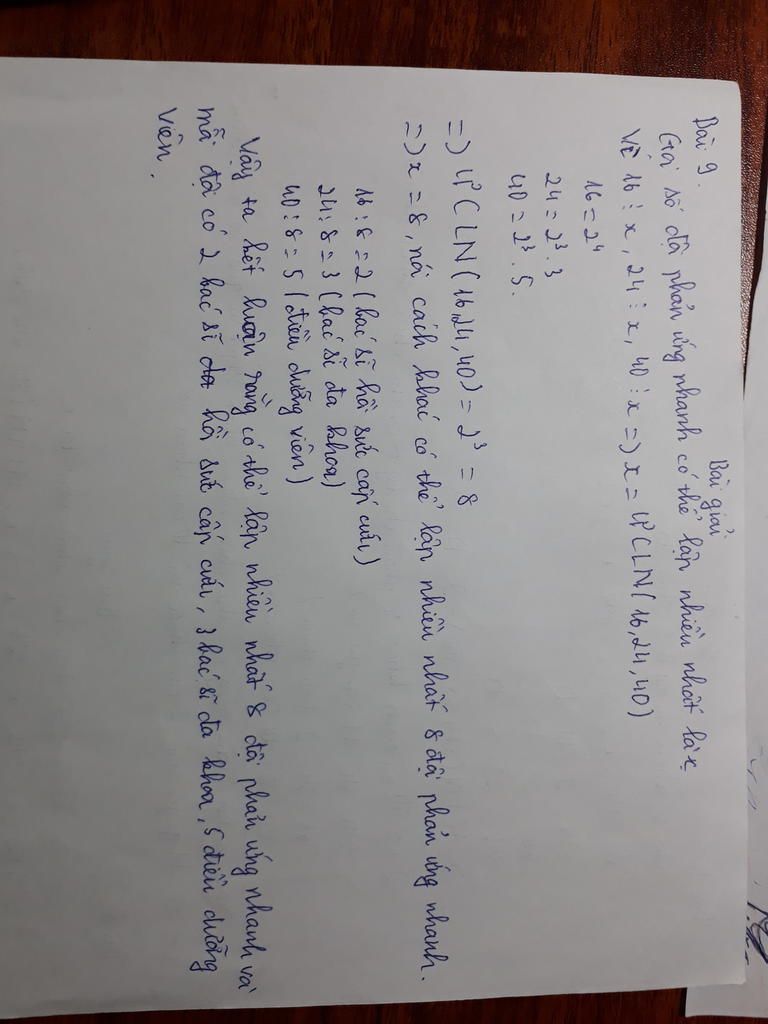 Bài 9.
Bài giải
Gọi số đội phản ứng nhanh có thể lập nhiều nhất là x.
Vì 16 ⋮ x, 24 ⋮ x, 40 ⋮ x => x = ƯCLN(16,24,40)
16 = 2⁴
24 = 2³.3
40 = 2³.5.
=> ƯCLN(16,24,40) = 2³ = 8
=> x = 8, nói cách khác có thể lập nhiều nhất 8 đội phản ứng nhanh.
16 : 8 = 2 (bác sĩ hồi sức cấp cứu)
24 : 8 = 3 (bác sĩ đa khoa)
40 : 8 = 5 (điều dưỡng viên)
Vậy ta kết luận rằng có thể lập nhiều nhất 8 đội phản ứng nhanh và
mỗi đội có 2 bác sĩ hồi sức cấp cứu, 3 bác sĩ đa khoa, 5 điều dưỡng
viên.